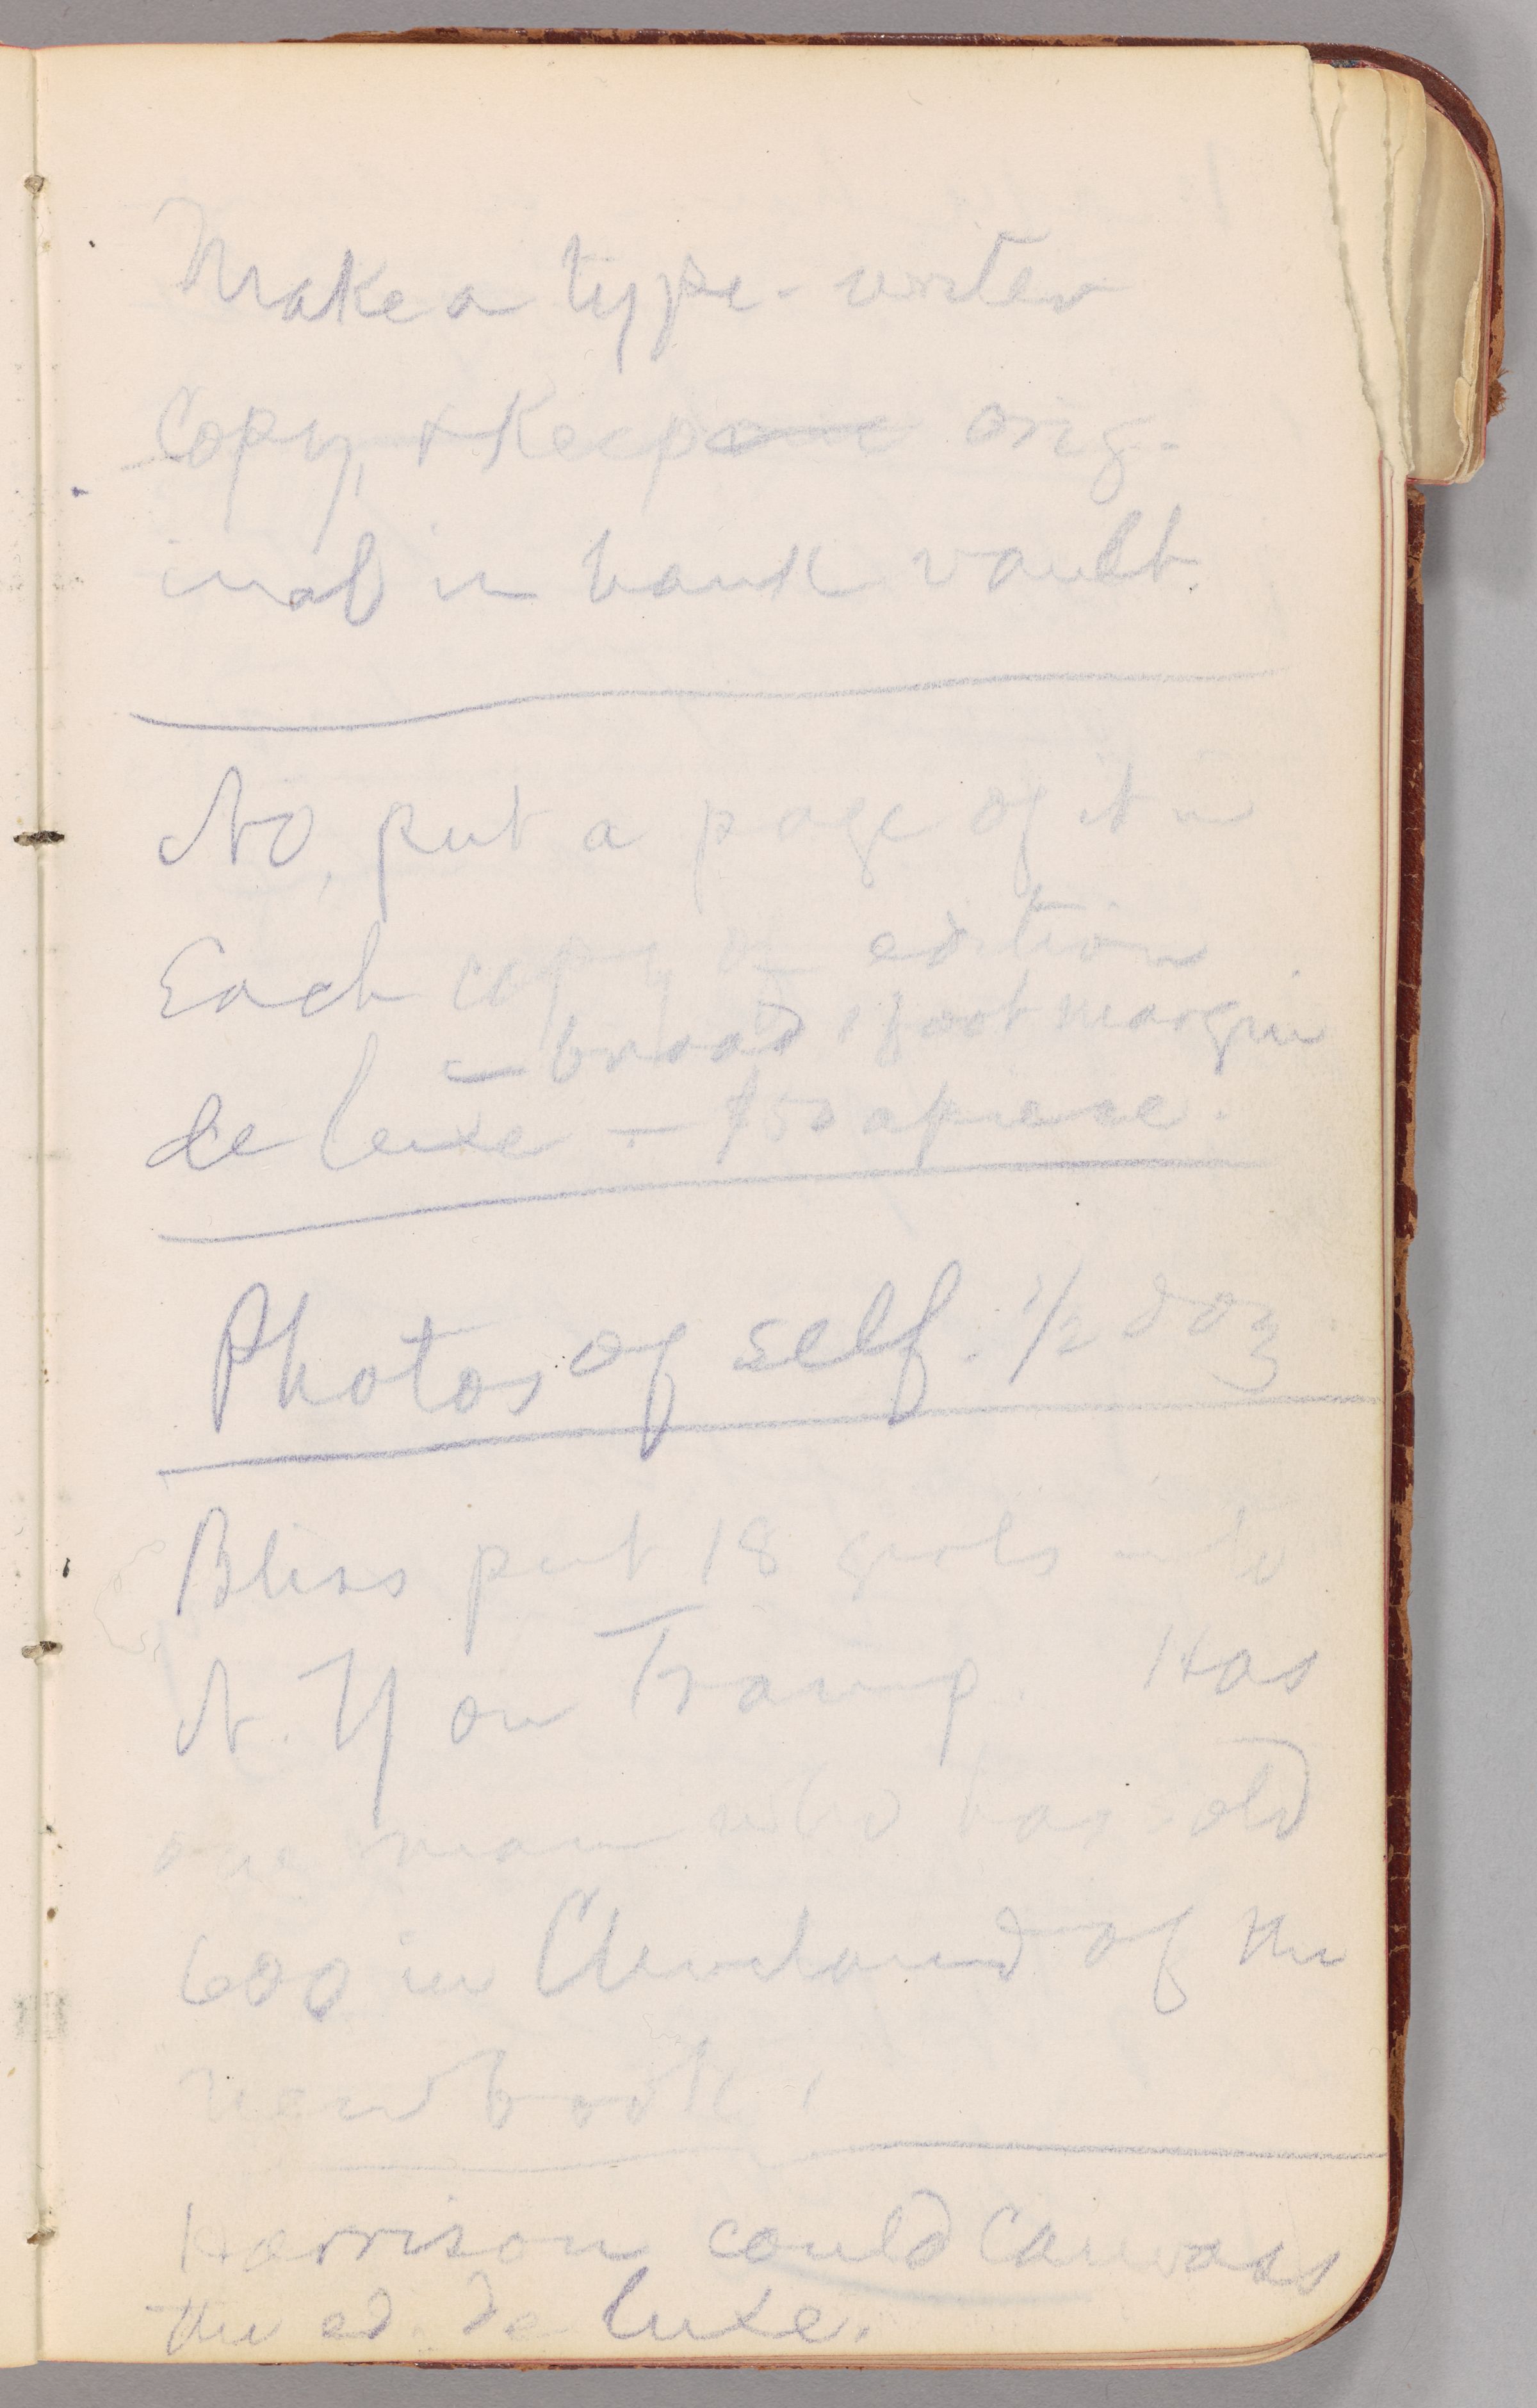 Make a type-writer
Copy, & Keep one orig-
inal in bank vault.
No, put a page of it in
Each copy of edition
— broad 1 foot margin
de luxe — $50 apiece.
Photos of self. 1/2 doz
Bliss put 18 girls into
N. Y on Tramp. Has
one man who has sold
600 in Cleveland of the
new book.
Harrison could canvass
the ed. de luxe.